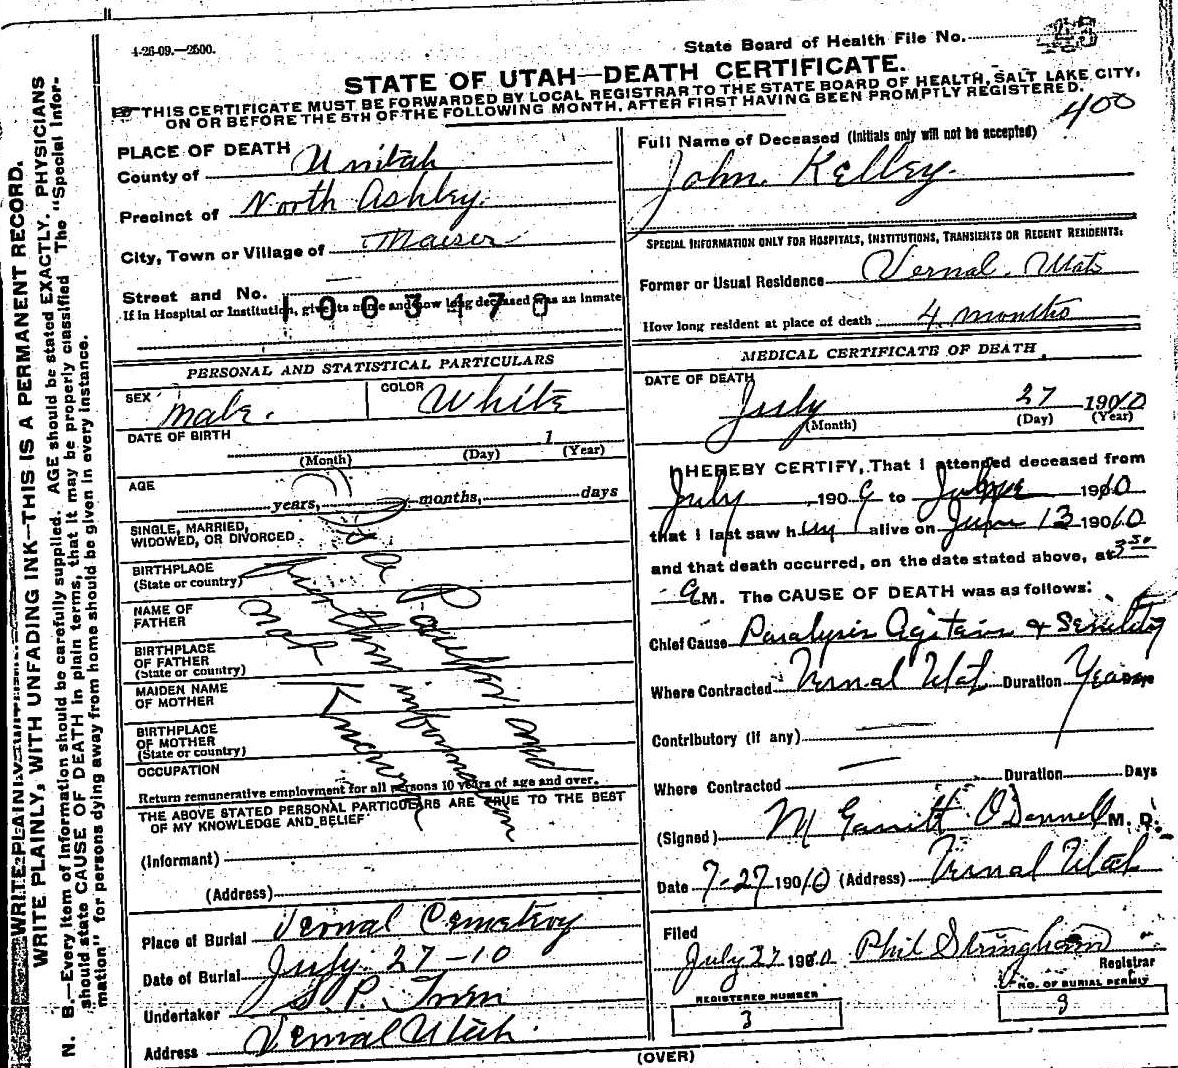 4-26-09.—2500.
State Board of Health File No.
STATE OF UTAH—DEATH CERTIFICATE.
THIS CERTIFICATE MUST BE FORWARDED BY LOCAL REGISTRAR TO THE STATE BOARD OF HEALTH, SALT LAKE CITY,
ON OR BEFORE THE 5TH OF THE FOLLOWING MONTH, AFTER FIRST HAVING BEEN PROMPTLY REGISTERED.
400
WRITE PLAINLY, WITH UNFADING INK—THIS IS A PERMANENT RECORD.
N. B.—Every item of information should be carefully supplied. AGE should be stated EXACTLY. PHYSICIANS
should state CAUSE OF DEATH in plain terms, that it may be properly classified The "Special Infor-
mation" for persons dying away from home should be given in every instance.
PLACE OF DEATH
County of Unitah
Precinct of North Ashley.
City, Town or Village of Maeser
Street and No.
If in Hospital or Institution, give its name and how long deceased was an inmate
1003470
PERSONAL AND STATISTICAL PARTICULARS
SEX Male.
COLOR White
DATE OF BIRTH 1
(Month) (Day) (Year)
AGE
years, months, days
SINGLE, MARRIED,
WIDOWED, OR DIVORCED
BIRTHPLACE
(State or country)
NAME OF
FATHER
BIRTHPLACE
OF FATHER
(State or country)
MAIDEN NAME
OF MOTHER
BIRTHPLACE
OF MOTHER
(State or country)
OCCUPATION
Return remunerative employment for all persons 10 years of age and over.
a Pauper and
further information
not Known
THE ABOVE STATED PERSONAL PARTICULARS ARE TRUE TO THE BEST
OF MY KNOWLEDGE AND BELIEF
(Informant)
(Address)
Place of Burial Vernal Cemetery
Date of Burial July. 27-10
Undertaker S. P.
Address Vernal Utah.
Full Name of Deceased (Initials only will not be accepted)
John Kelley.
SPECIAL INFORMATION ONLY FOR HOSPITALS, INSTITUTIONS, TRANSIENTS OR RECENT RESIDENTS:
Former or Usual Residence Vernal. Utah
How long resident at place of death 4 months
MEDICAL CERTIFICATE OF DEATH
DATE OF DEATH
July 27 1910
(Month) (Day) (Year)
I HEREBY CERTIFY, That I attended deceased from
July 1909 to June 1910
that I last saw him alive on June 13 1910
and that death occurred, on the date stated above, at 3 30
a M. The CAUSE OF DEATH was as follows:
Chief Cause Paralysis Agitans & Senility
Where Contracted Vernal Utah Duration Years Days
Contributory (if any)
Where Contracted Duration Days
(Signed) M Garritt O'Donnell M. D.
Date 7-27 1910 (Address) Vernal Utah
Filed
July 27 1910 Phil Stringham
Registrar
REGISTERED NUMBER
3
NO. OF BURIAL PERMIT
3
(OVER)